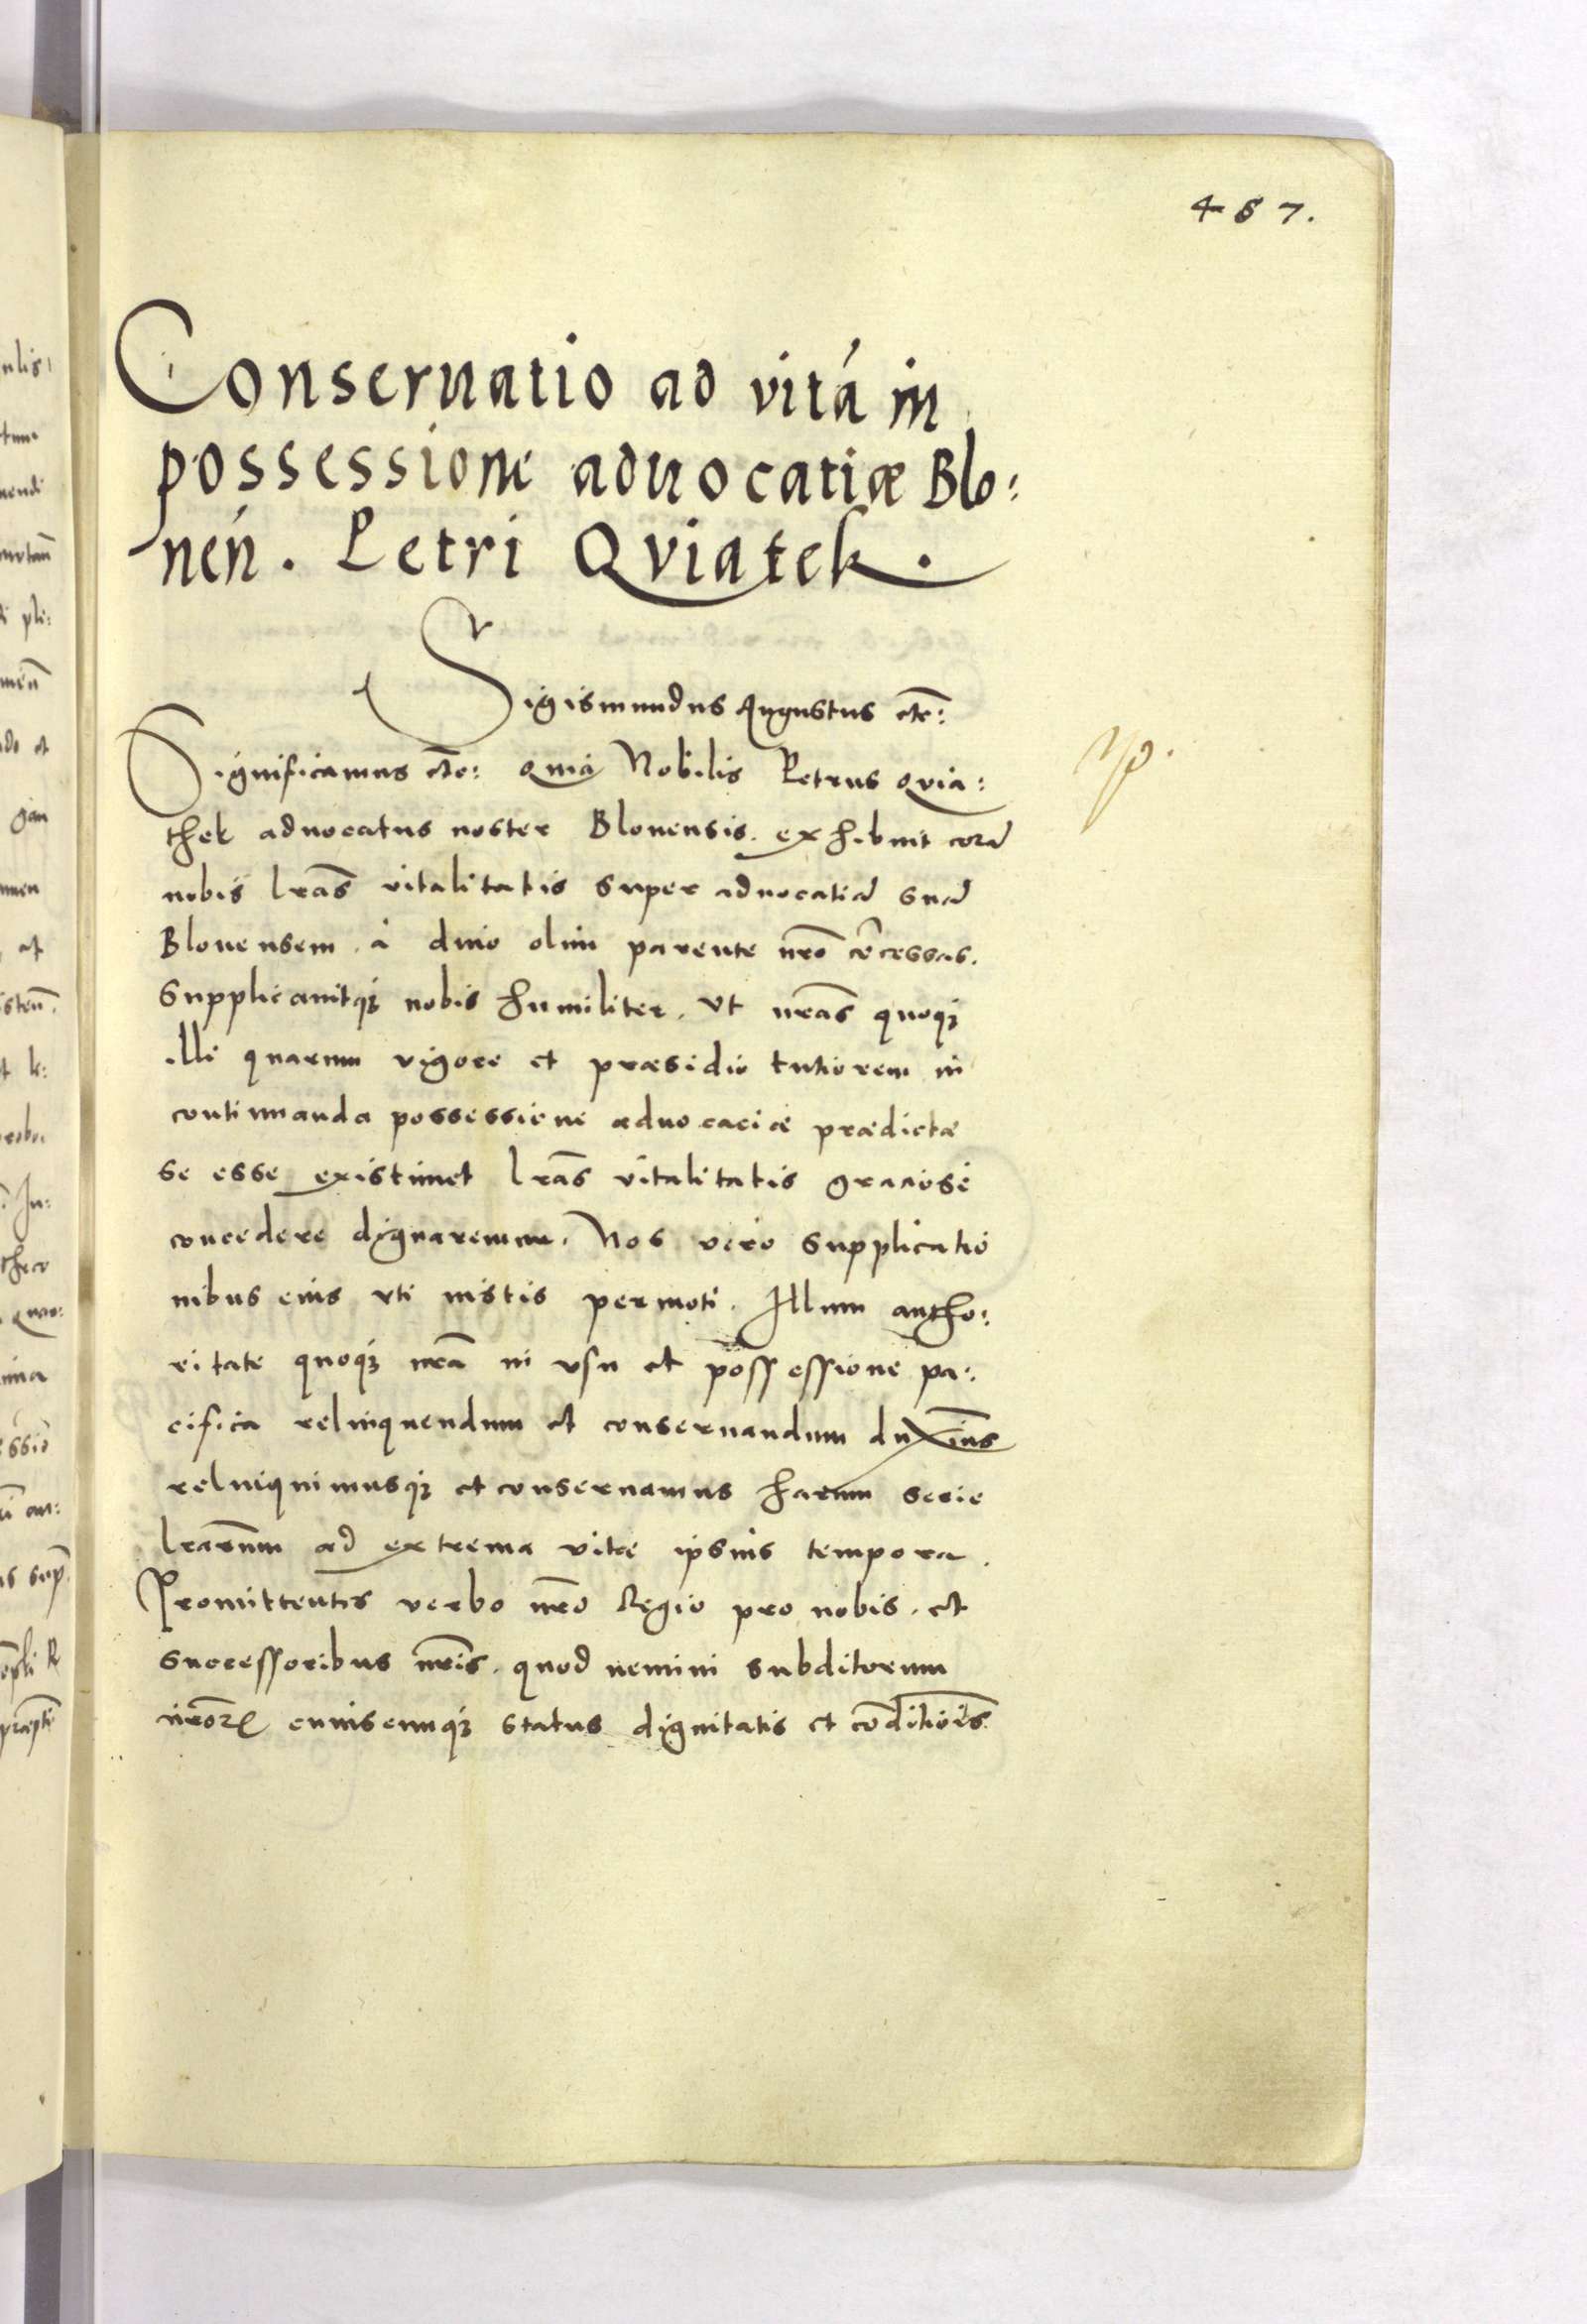 487.
Conseruatio ad vitá in
possessione aduocatiæ Blo:
nen̄. Petri Qviatek.
Sigismundus Augustus etc:
Significamus etc: Quia Nobilis Petrus Qvia:
thek aduocatus noster Blonensis. exhibuit corā
nobis lrās vitalitatis super aduocatiā suā
Blonensem. a diuo olim parente nrō cōcessas.
Supplicauitq; nobis humiliter. vt nrās quoq;
illi quarum vigore et præsidio tutiorem in
continuanda possessione aduocaciæ prædictæ
se esse existimet lrās vitalitatis graciose
concedere dignaremur. Nos vero supplicatio
nibus eius vti iustis permoti. Illum autho:
ritate quoq; nrā in vsu et possessione pa:
cifica relinquendum et conseruandum duxim̄s
relinquimusq; et conseruamus harum serie
lrarum ad extrema vitæ ipsius tempora.
Promittentes verbo nrō Regio pro nobis. et
successoribus nrīs. quod nemini subditorum
nrōrꝝ cuiuscunq; status dignitatis et cōditiōis